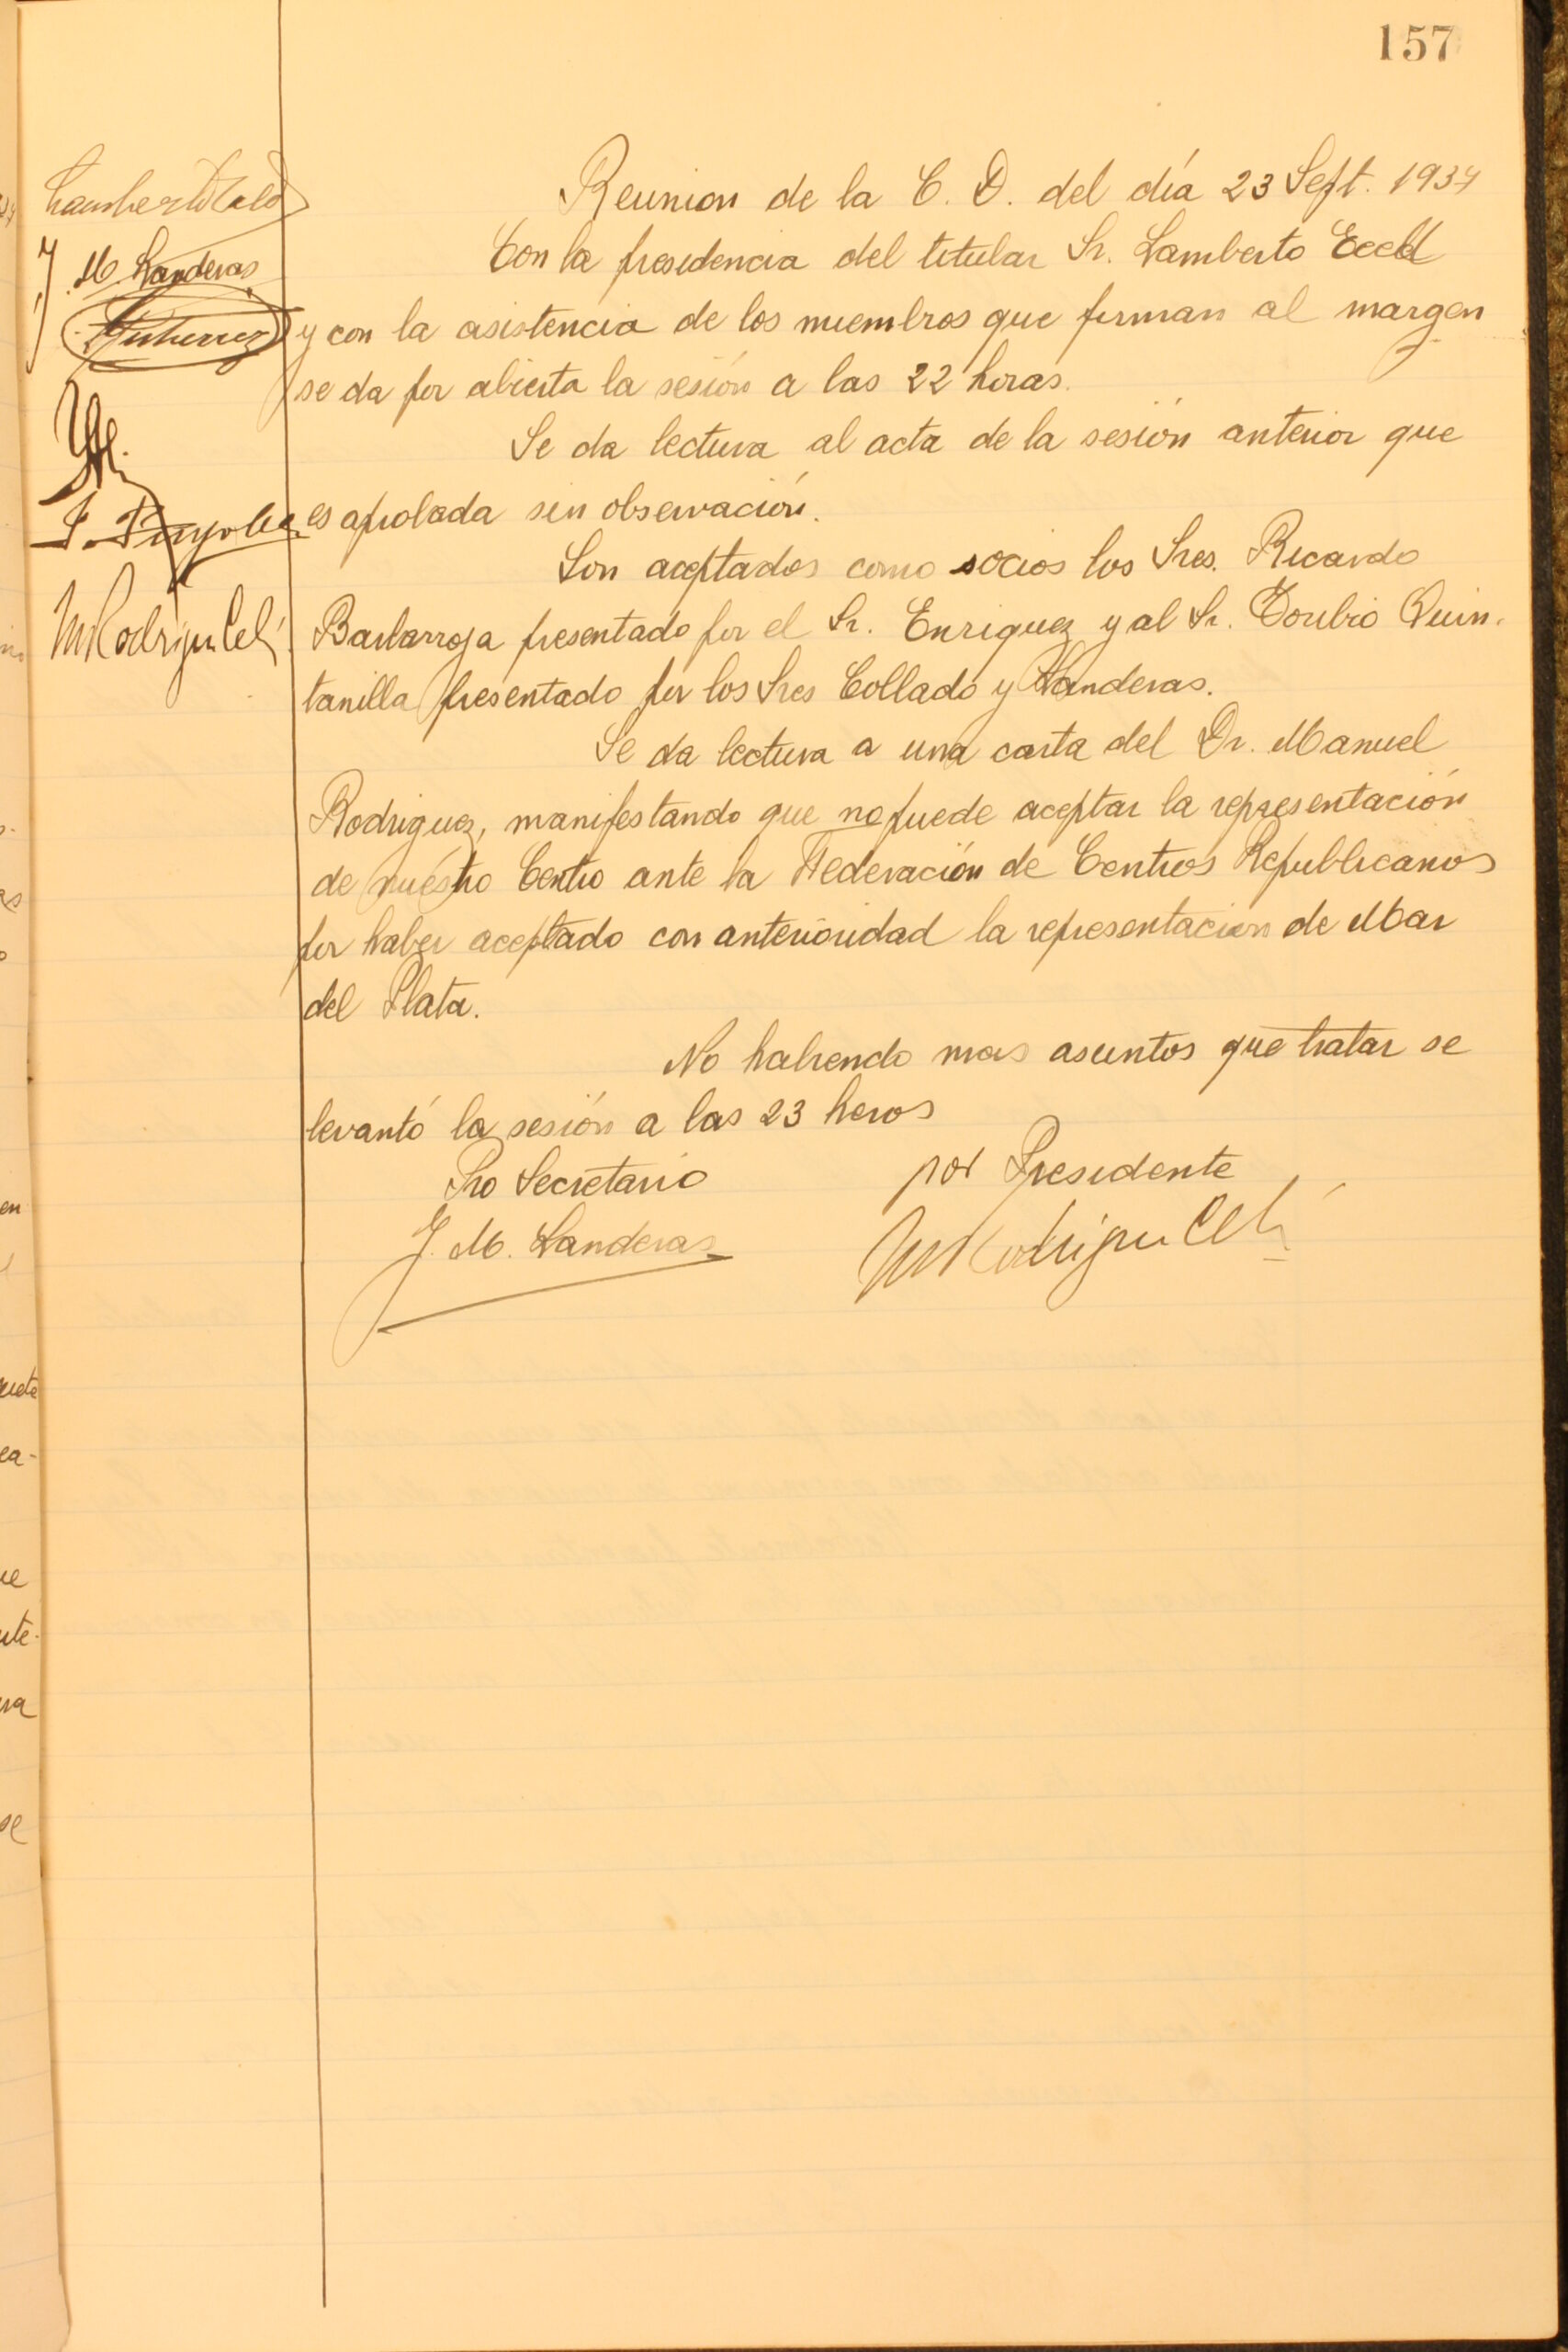 157
Reunion de la C. D. del día 23 Sept. 1934
Con la presidencia del titular Sr. Lamberto
J. M. Landeras
Gutierrez
y con la asistencia de los miembros que firman al margen
se da por abierta la sesión a las 22 horas.
Se da lectura al acta de la sesión anterior que
es aprobada sin observación.
Son aceptados como socios los Sres. Ricardo
Barbarroja presentado por el Sr. Enriquez y al Sr. Toribio Quin-
tanilla presentado por los Sres Collado y Landeras.
Se da lectura a una carta del Dr. Manuel
Rodriguez, manifestando que no puede aceptar la representación
de nuéstro Centro ante la Federación de Centros Republicanos
por haber aceptado con anterioridad la representacion de Mar
del Plata.
No habiendo mas asuntos que tratar se
levantó la sesión a las 23 horas
Pro Secretario
por Presidente
J. M. Landeras